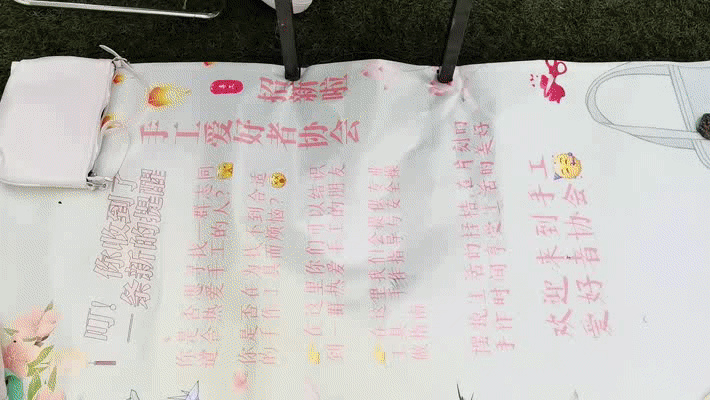 招新啦
手工爱好者协会
叮！你收到了
一条新的提醒
你是否想寻找一群志同
道合热爱手工的人？
你是否在为找不到合适
的手作工具而烦恼？
在这里你们可以结识
到一群热爱手工的朋友
在这里我们会提供专业
手作指导与安全操
做指南
摆脱生活的桎梏，在片刻的
手作时间享受生活的美好
欢迎来到手工
爱好者协会